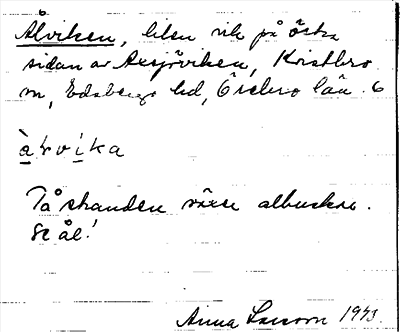 Ålviken, liten vik på östra
sidan av Axsjöviken, Kvistbro
sn, Edsbergs hd, Örebro län. 6
à l v i k a
På stranden växer albuskar.
Se ål!
Anna Larsson 1933.